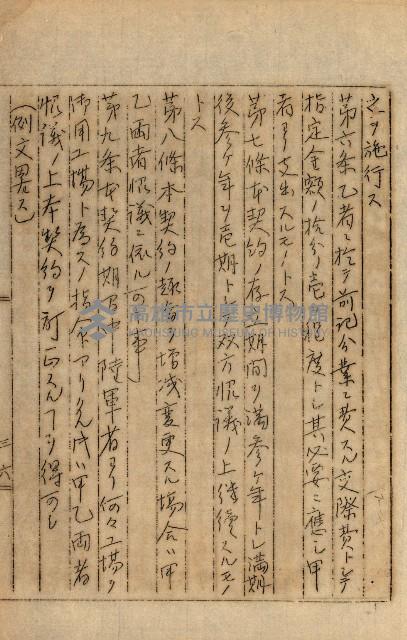 之ヲ施行ス
第六条乙者ニ於テ前記分業ニ費スル交際費トシテ
指定金額拾分ノ壱程度トシ其必要ニ應シ甲
者ヨリ支出スルモノトス
第七條本契約ノ存期間ヲ満参ヶ年トシ満期
後参ヶ年ヲ壱期トシ双方協議ノ上継續スルモノ
トス
第八條本契約ノ趣旨増減変更スル場合ハ甲
乙両者協議ニ依ル可キ事
第九条本契約期間中陸軍者ヨリ何々工場ヲ
御用工場ト為スノ指令アリタル時ハ甲乙両者
協議ノ上本契約ヲ訂正スル事ヲ得可シ
(例文畧ス)
三六
高雄市立歷史博物館
KAOHSIUNG MUSEUM OF HISTORY